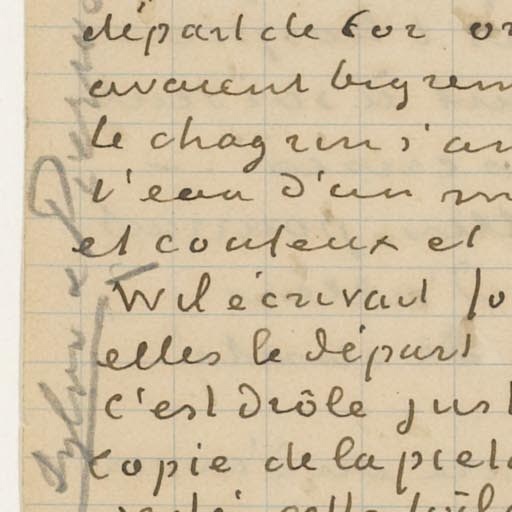 départ de Cor or
avaient bigrem
le chagrin s'an
l'eau d'un m
et couteux et
Wil écrivait Jo
elles le départ
c'est drôle just
copie de la pieta